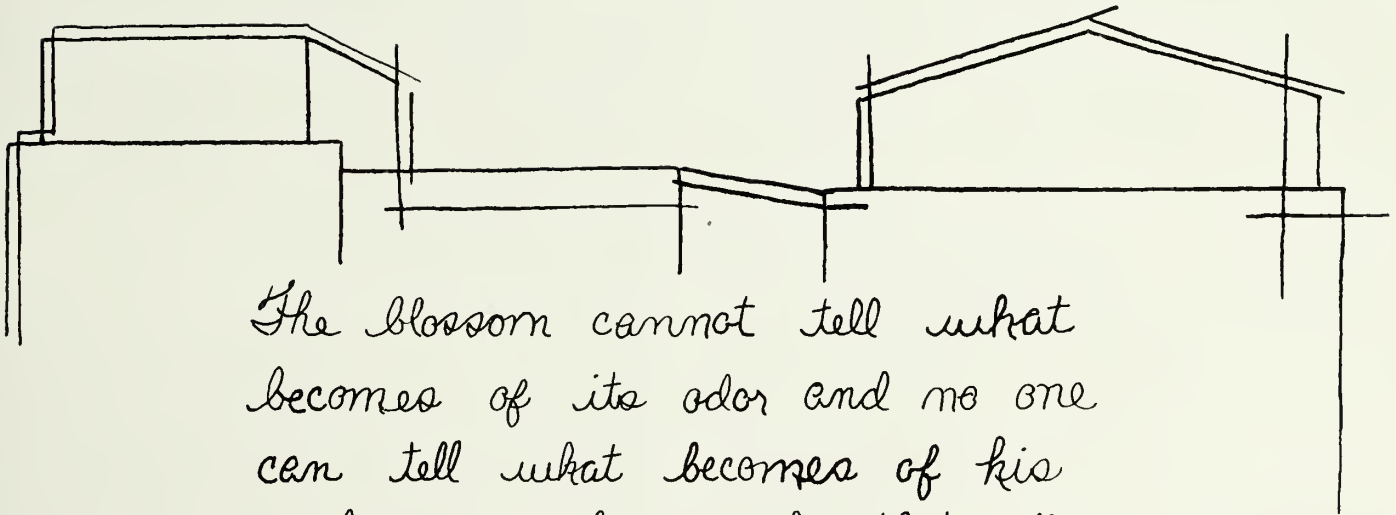 The blossom cannot tell what
becomes of its odor and no one
can tell what becomes of his